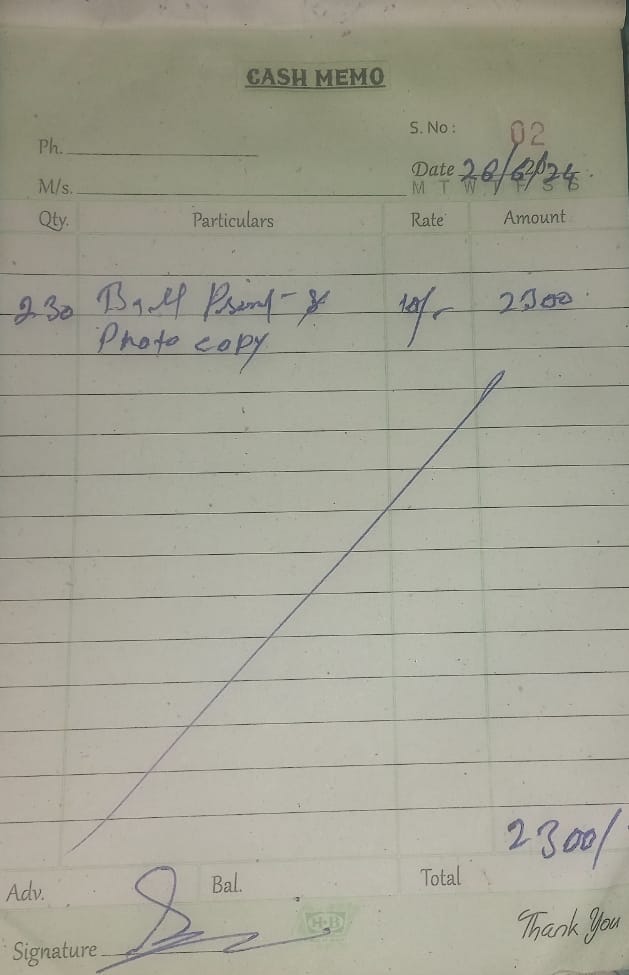 CASH MEMO
S. No : 02
Ph.
Date 26/6/2024
M/s. M T W T F S S
Qty. Particulars Rate Amount
230 Print & 10/- 2300
Photo copy
2300/
Adv. Bal. Total
H·B
Signature Thank You